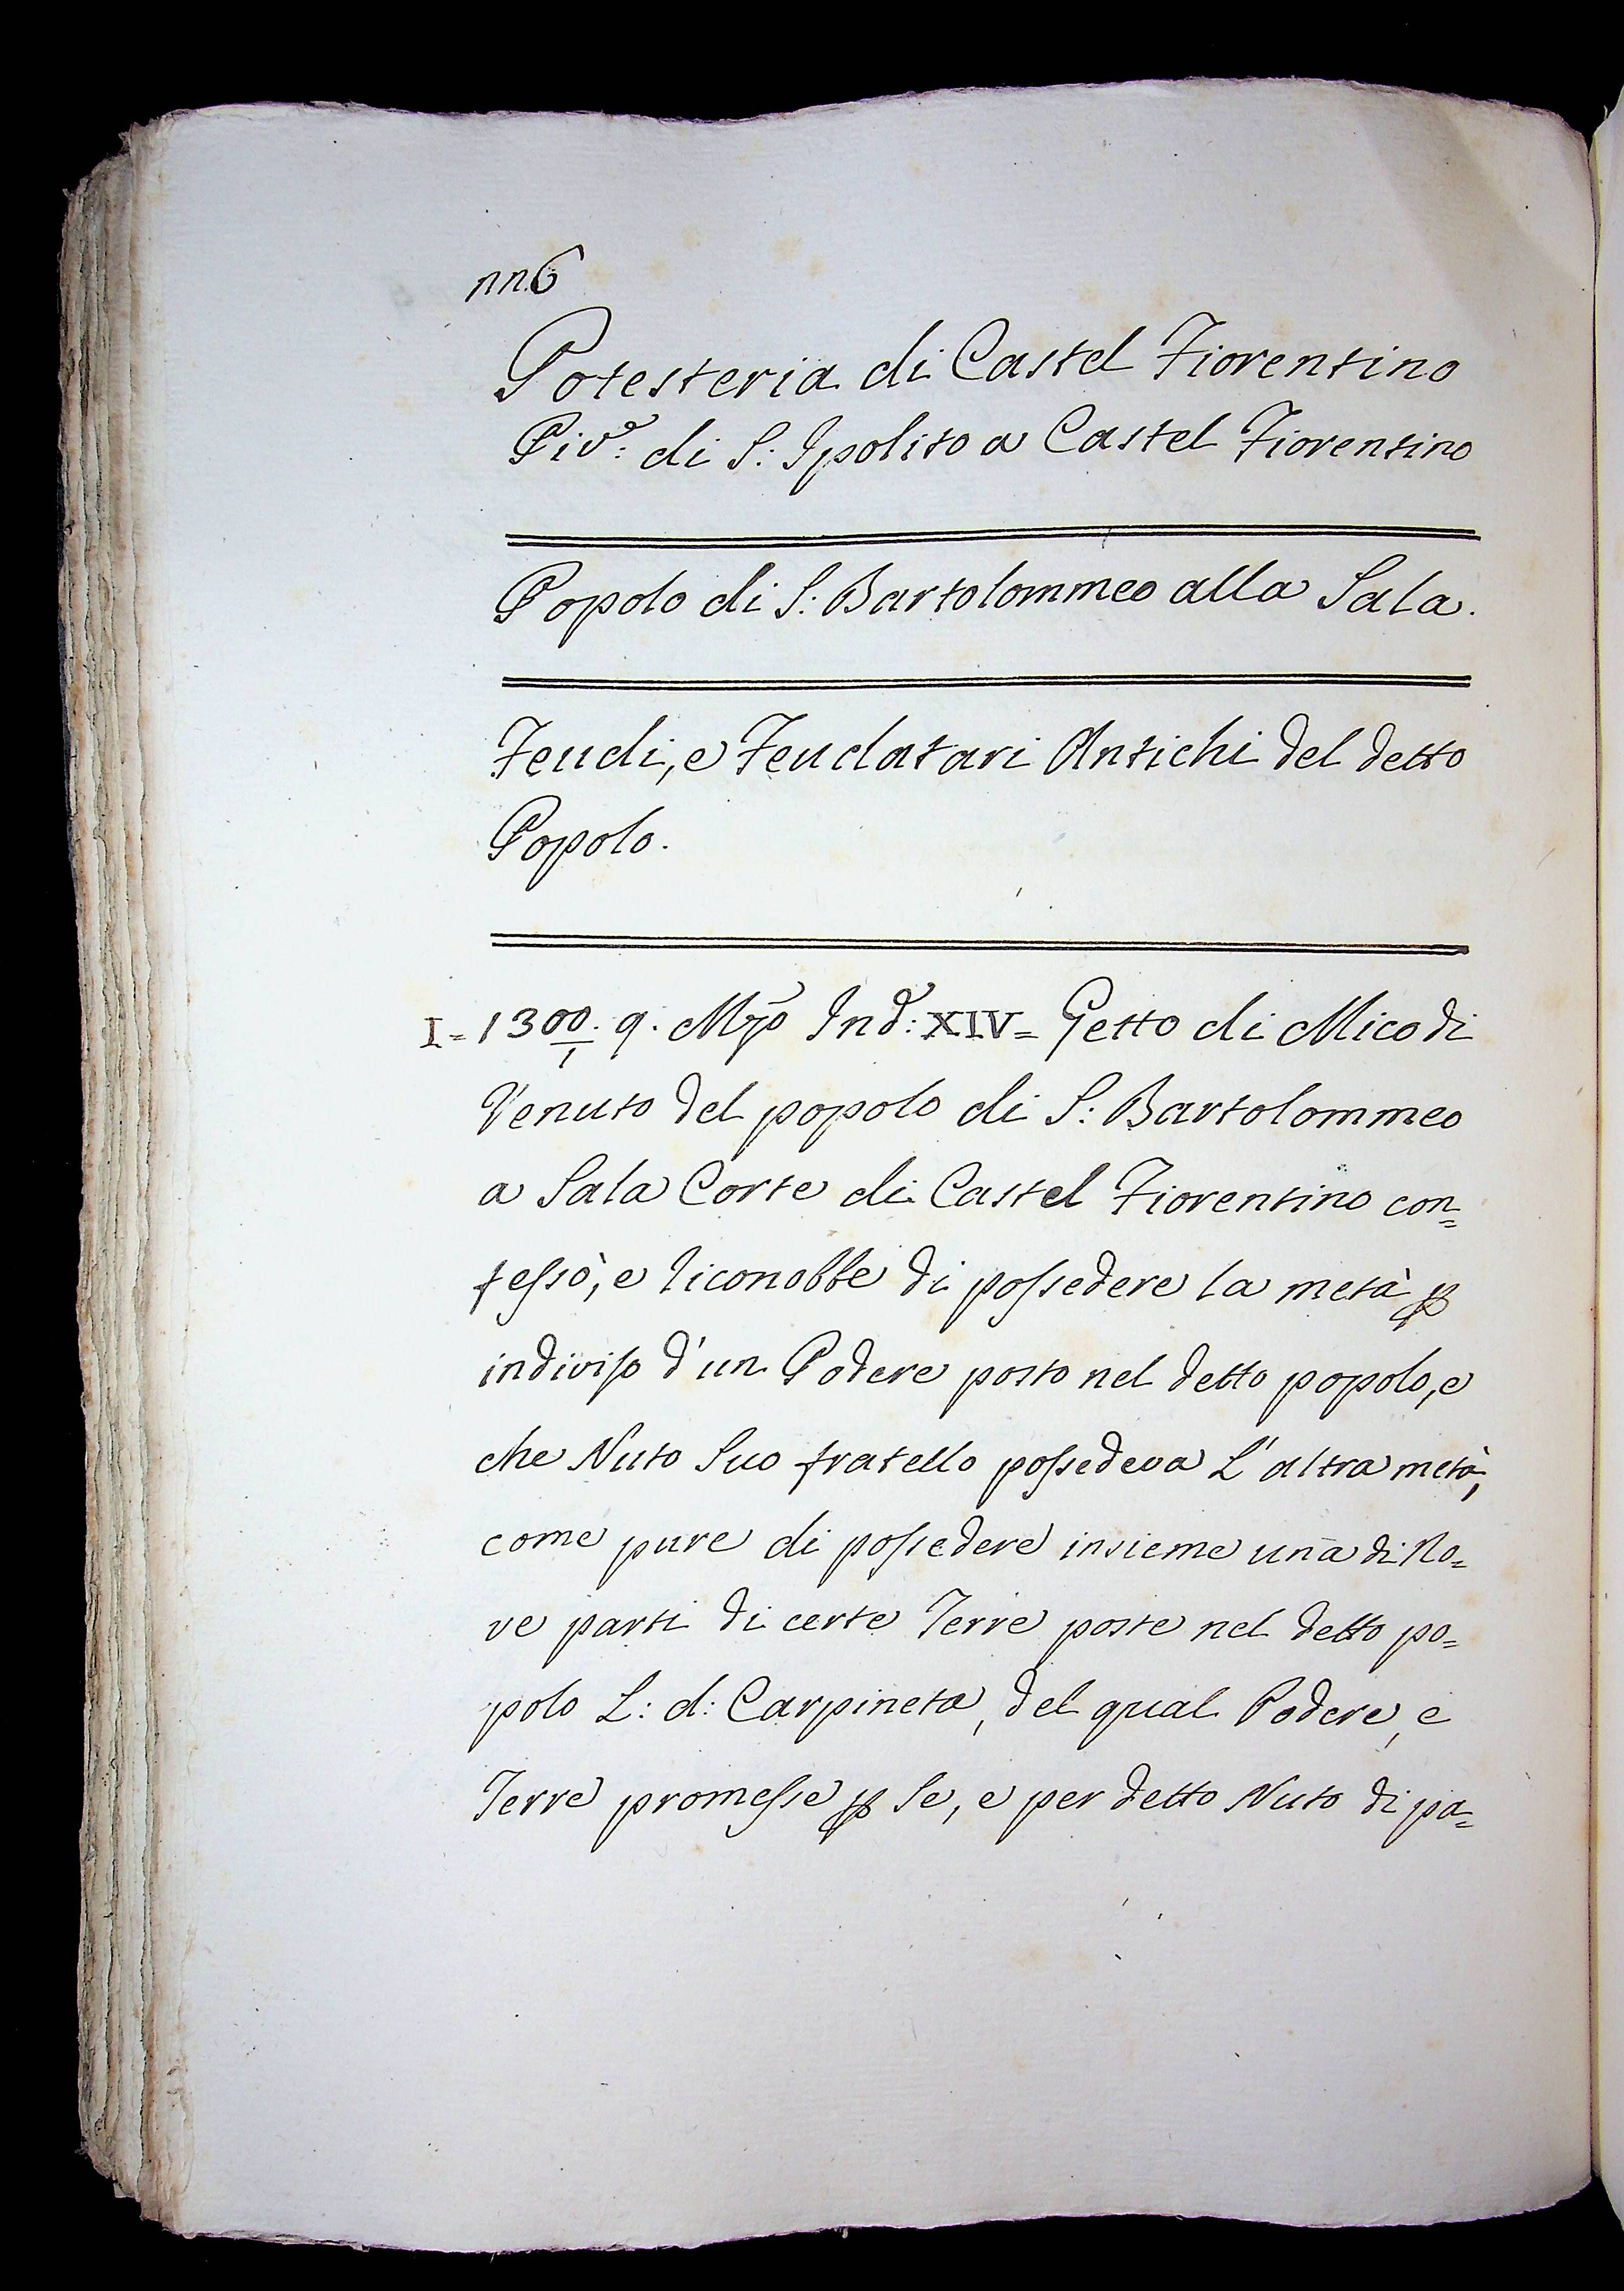 nn.6
Potesteria di Castel Fiorentino
Piv.e di S: Ipolito a Castel Fiorentino
Popolo di S: Bartolommeo alla Sala.
Feudi, e Feudatari Antichi del detto
Popolo.
I= 1300/1. 9. Mzo Ind: XIV= Getto di Mico di
Venuto del popolo di S: Bartolommeo
a Sala Corte di Castel Fiorentino con=
fessò, e riconobbe di possedere la metà p
indiviso d'un Podere posto nel detto popolo, e
che Nuto Suo fratello possedeva L'altra metà,
come pure di possedere insieme una di No=
ve parti di certe Terre poste nel detto po=
polo L: d: Carpineta, del qual Podere, e
Terre promesse p Se, e per detto Nuto di pa=